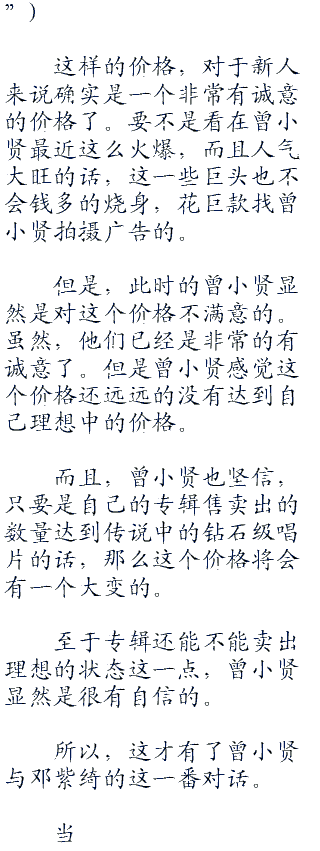 ”)
这样的价格，对于新人
来说确实是一个非常有诚意
的价格了。要不是看在曾小
贤最近这么火爆，而且人气
大旺的话，这一些巨头也不
会钱多的烧身，花巨款找曾
小贤拍摄广告的。
但是，此时的曾小贤显
然是对这个价格不满意的。
虽然，他们已经是非常的有
诚意了。但是曾小贤感觉这
个价格还远远的没有达到自
己理想中的价格。
而且，曾小贤也坚信，
只要是自己的专辑售卖出的
数量达到传说中的钻石级唱
片的话，那么这个价格将会
有一个大变的。
至于专辑还能不能卖出
理想的状态这一点，曾小贤
显然是很有自信的。
所以，这才有了曾小贤
与邓紫绮的这一番对话。
当